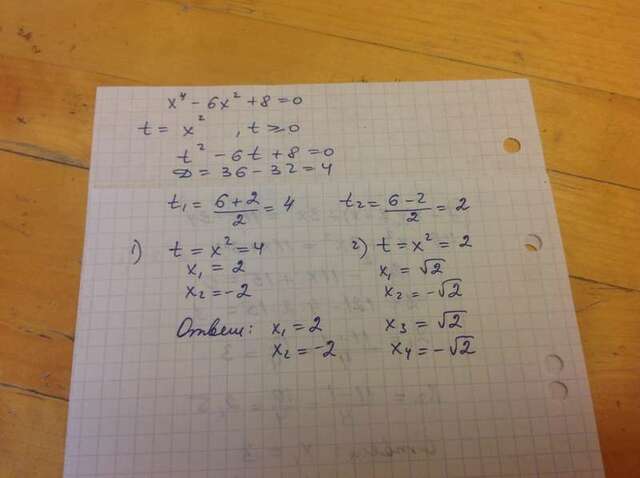 x⁴ - 6x² + 8 = 0
t = x² , t ≥ 0
t² - 6t + 8 = 0
D = 36 - 32 = 4
t₁ = (6 + 2)/2 = 4 t₂ = (6 - 2)/2 = 2
1) t = x² = 4 2) t = x² = 2
x₁ = 2 x₁ = √2
x₂ = -2 x₂ = -√2
Ответ: x₁ = 2 x₃ = √2
x₂ = -2 x₄ = -√2